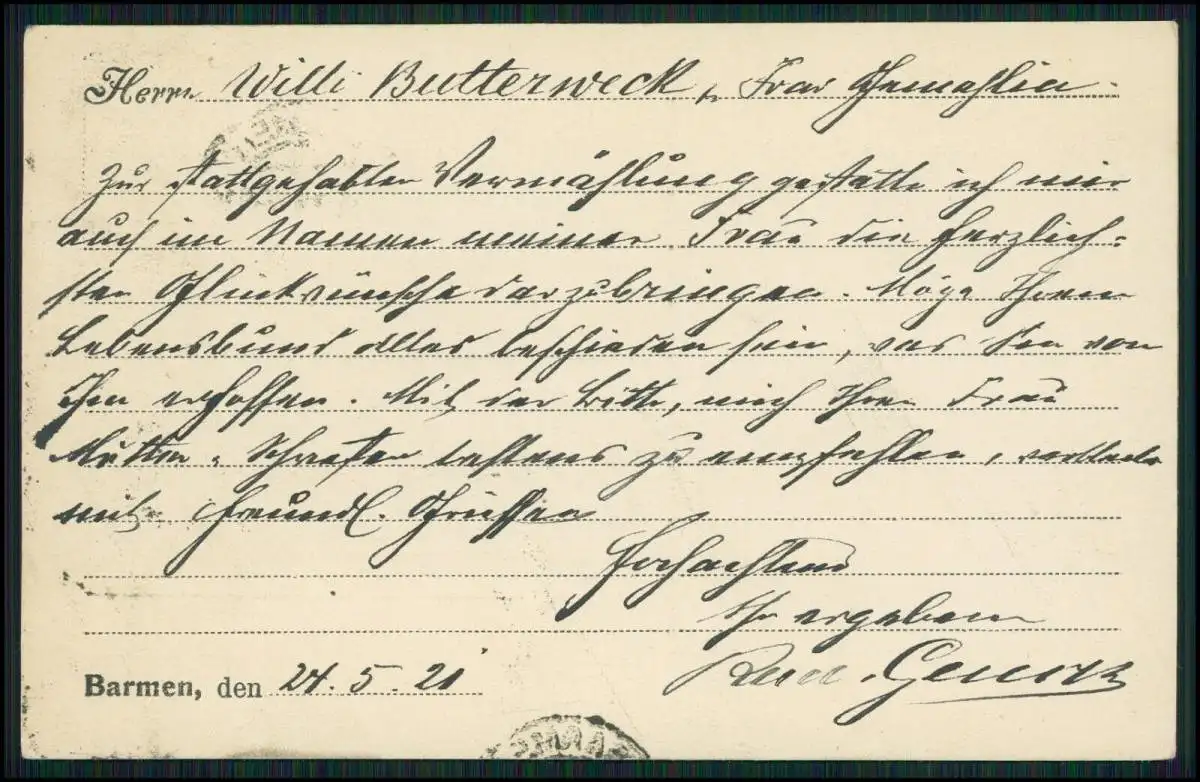 Herrn Willi Butterweck, Frau Gemahlin.
Zur stattgehabten Vermählung gestatte ich mir
auch im Namen meiner Frau die herzlich=
sten Glückwünsche darzubringen. Möge Ihrem
Lebensbund alles beschieden sein, was Sie von
ihm erhoffen. Mit der Bitte, mich Ihrer Frau
Mutter u. bestens zu empfehlen, verbleibe
mit freundl. Grüssen
Hochachtend
Ihr ergebener
Barmen, den 24.5.21